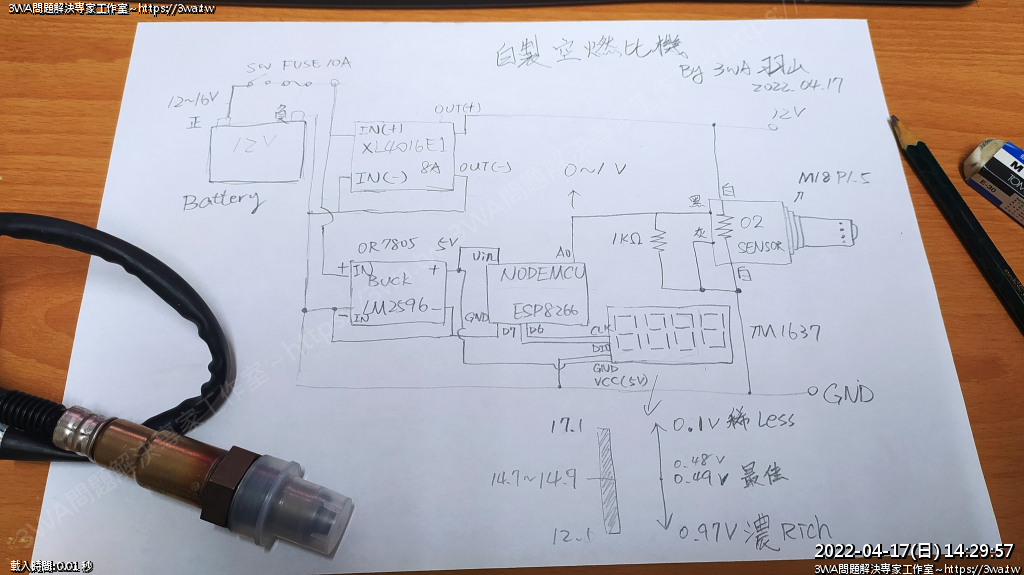 3WA問題解決專家工作室~https://3wa.tw
3WA問題解決專家工作室~https://3wa.tw
自製空燃比機
By 3WA 羽山
2022.04.17
SW FUSE 10A
12~16V
正
負
12V
Battery
OUT(+)
IN(+)
XL4016E1
8A
IN(-)
OUT(-)
12V
0~1V
M18 P1.5
白
黑
灰
O2
SENSOR
白
1KΩ
OR 7805
5V
+ IN
+
BUCK
LM2596
- IN
-
Vin
A0
NODEMCU
ESP8266
GND
D7
D6
CLK
DIO
GND
VCC(5V)
TM1637
GND
17.1
0.1V 稀 Less
14.7~14.9
0.48V
0.49V 最佳
0.97V 濃 Rich
MONO
E-30
載入時間:0.01 秒
2022-04-17(日) 14:29:57
3WA問題解決專家工作室~https://3wa.tw